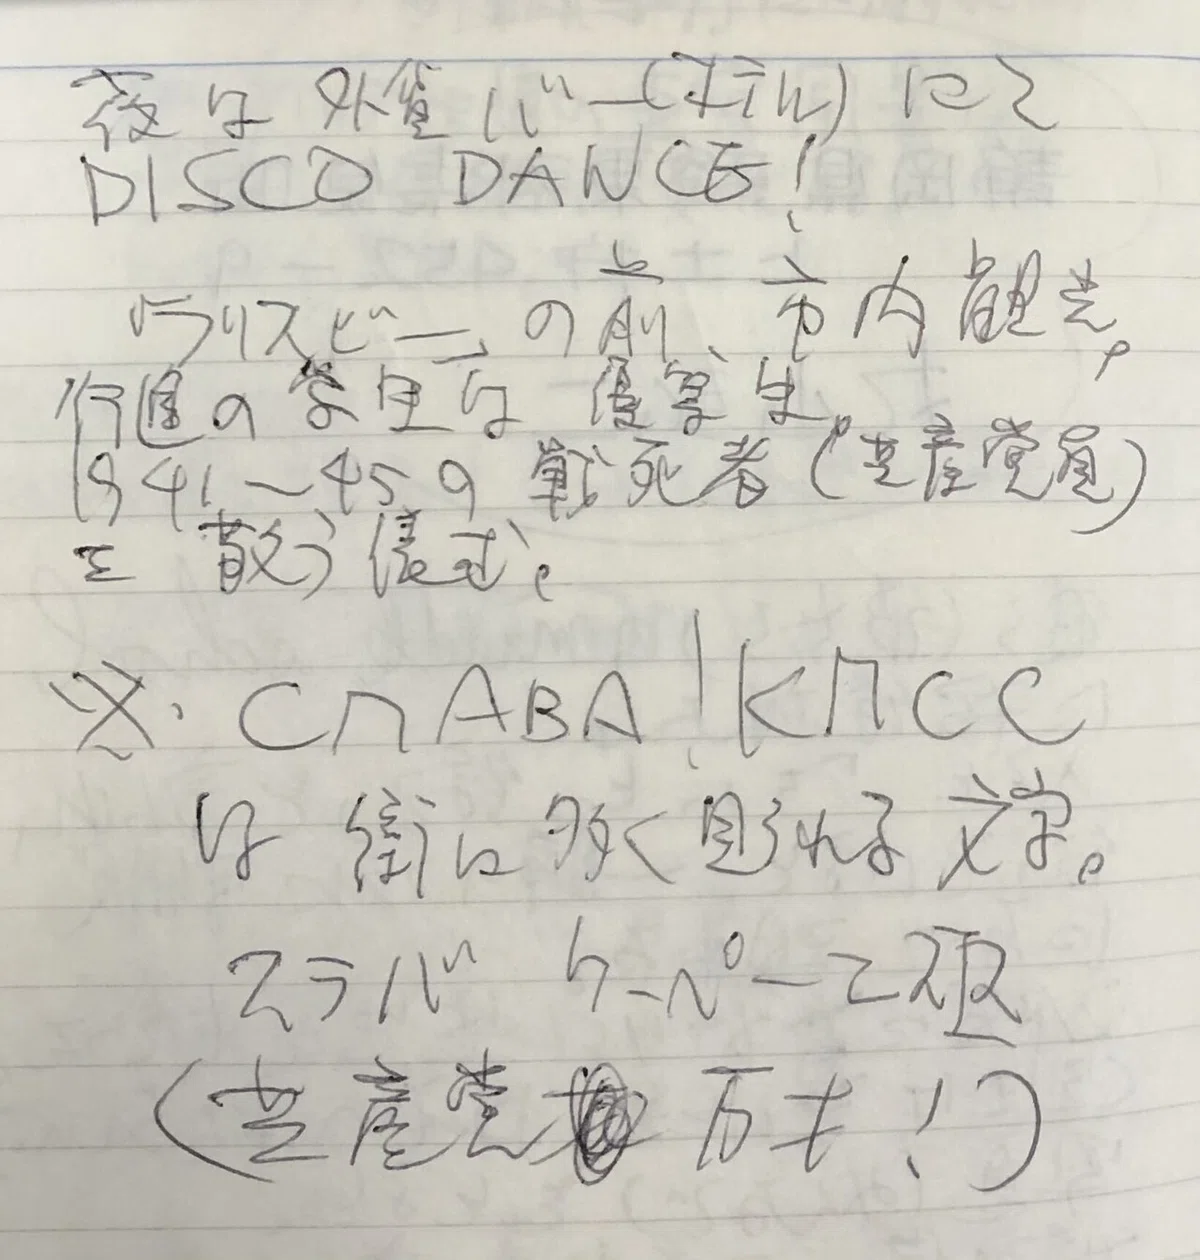 夜は外貨バー(ホテル)にて
DISCO DANCE!
の前、市内観光。
行進の学生は優等生。
1941〜45の戦死者(共産党員)
を敬う儀式。
※. CПABA! KПCC
は街に多く見られる文字。
スラバ ケーペーエスエス
(共産党 万才!)